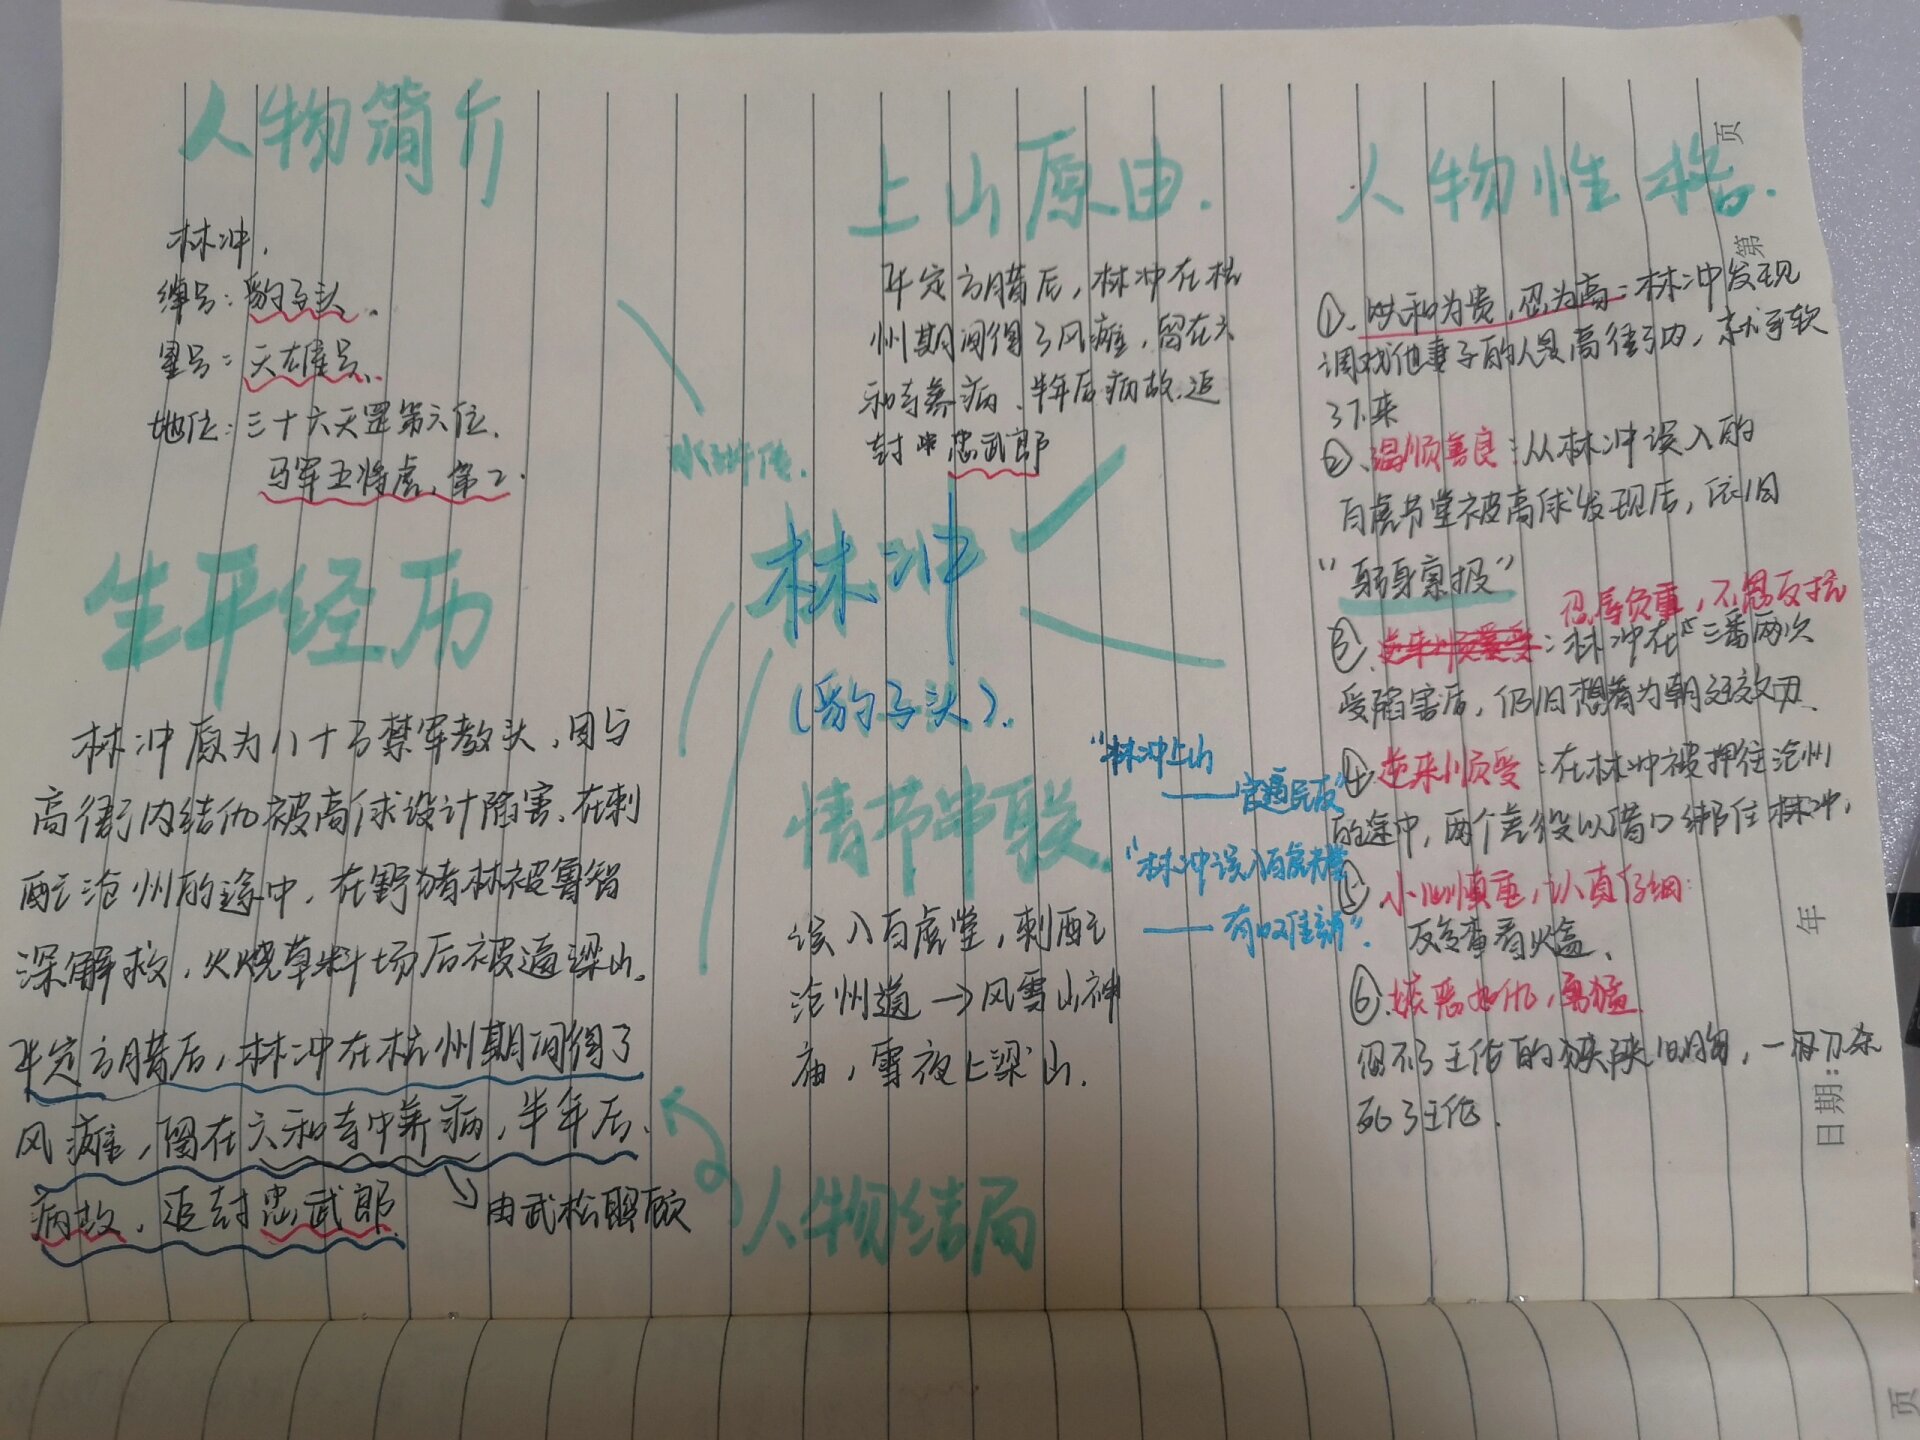 人物简介
林冲,
绰号：豹子头、
星号：天雄星、
地位：三十六天罡第六位.
马军五将虎、第2.
生平经历
林冲原为八十万禁军教头，因与
高衙内结仇被高俅设计陷害.在刺
配沧州的途中，在野猪林被鲁智
深解救，火烧草料场后被逼梁山.
平定方腊后，林冲在杭州期间得了
风瘫，留在六和寺中养病，半年后、
病故、追封忠武郎
由武松照顾
水浒传.
林冲
(豹子头).
上山原由.
平定方腊后，林冲在杭
州期间得了风瘫，留在六
和寺养病、半年后病故.追
封中忠武郎
情节串联.
误入白虎堂，刺配
沧州道→风雪山神
庙，雪夜上梁山.
"林冲上山
——官逼民反"
"林冲误入白虎堂
——有口难辩".
人物结局
人物性格.
①、以和为贵，忍为高：林冲发现
调戏他妻子的人是高衙内，就手软
了下来
②、温顺善良：从林冲误入的
白虎节堂被高俅发现后，依旧
"躬身禀报"
忍辱负重，不思反抗
③、逆来顺受：林冲在三番两次
受陷害后，仍旧想着为朝廷效力.
④、逆来顺受：在林冲被押往沧州
的途中，两个差役以借口绑住林冲，
⑤、小心慎重，认真仔细：
反复查看火盆、
⑥、嫉恶如仇，勇猛
忍不了王伦的狭隘心胸，一把刀杀
死了王伦.
第 页
年
日期：
页